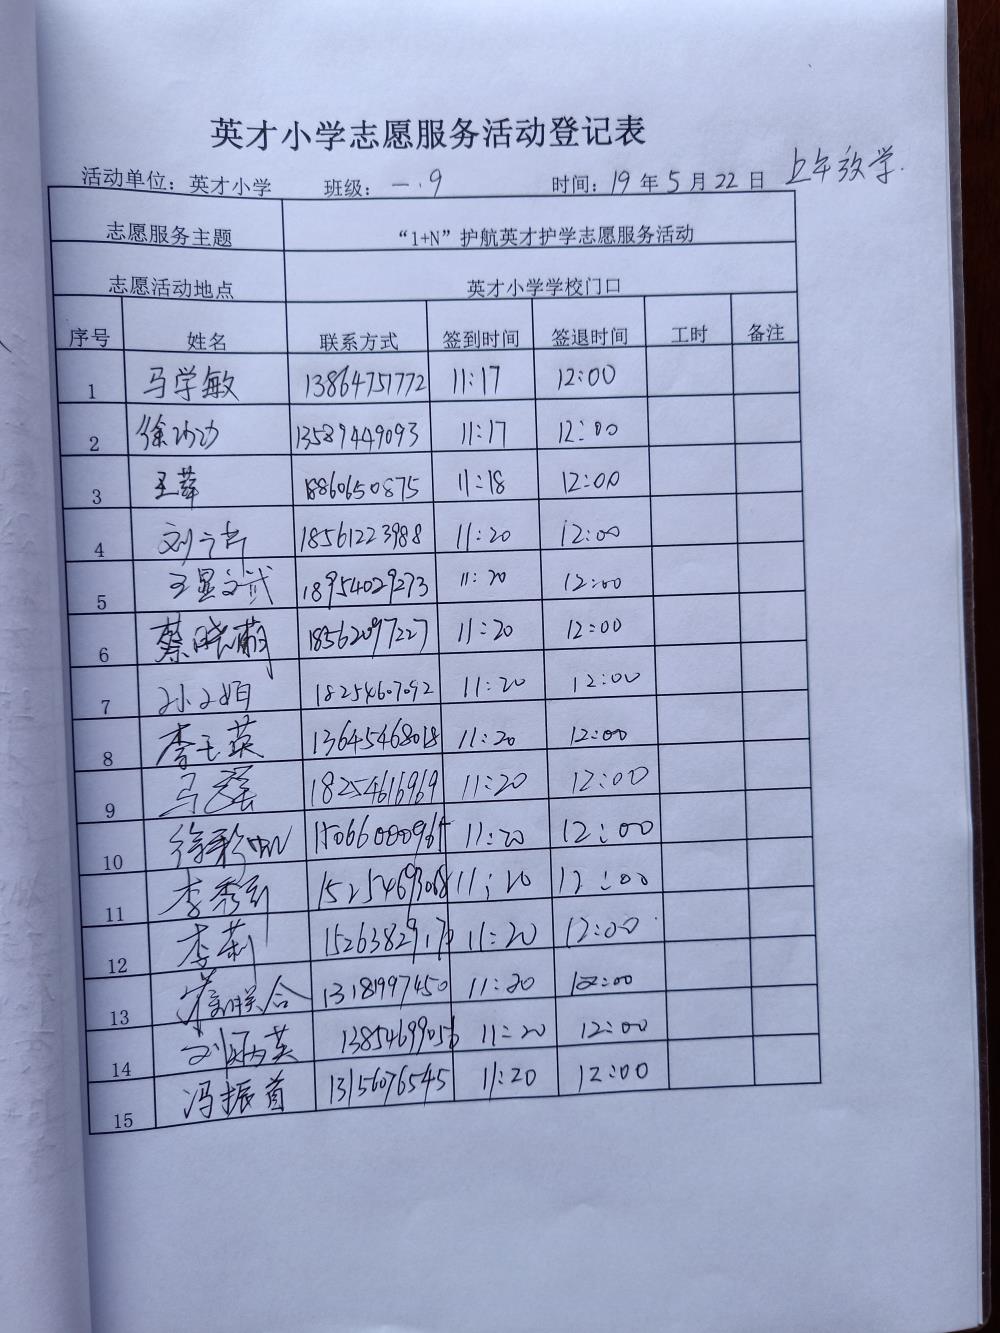 英才小学志愿服务活动登记表
活动单位：英才小学 班级：一.9 时间：19年5月22日 上午放学.
志愿服务主题 “1+N”护航英才护学志愿服务活动
志愿活动地点 英才小学学校门口
序号 姓名 联系方式 签到时间 签退时间 工时 备注
1 马学敏 13864751772 11:17 12:00
2 徐 13589449093 11:17 12:00
3 王 18860650875 11:18 12:00
4 刘 18561223988 11:20 12:00
5 王显文武 18954029273 11:20 12:00
6 蔡晓萌 18562097227 11:20 12:00
7 孙 18254607092 11:20 12:00
8 李玉英 13645468018 11:20 12:00
9 马 18254616969 11:20 12:00
10 徐彩 15066000965 11:20 12:00
11 李秀 15254693068 11:20 12:00
12 李莉 11:20 12:00
13 联合 13181997450 11:20 12:00
14 刘炳英 13854699056 11:20 12:00
15 冯振首 13156076545 11:20 12:00